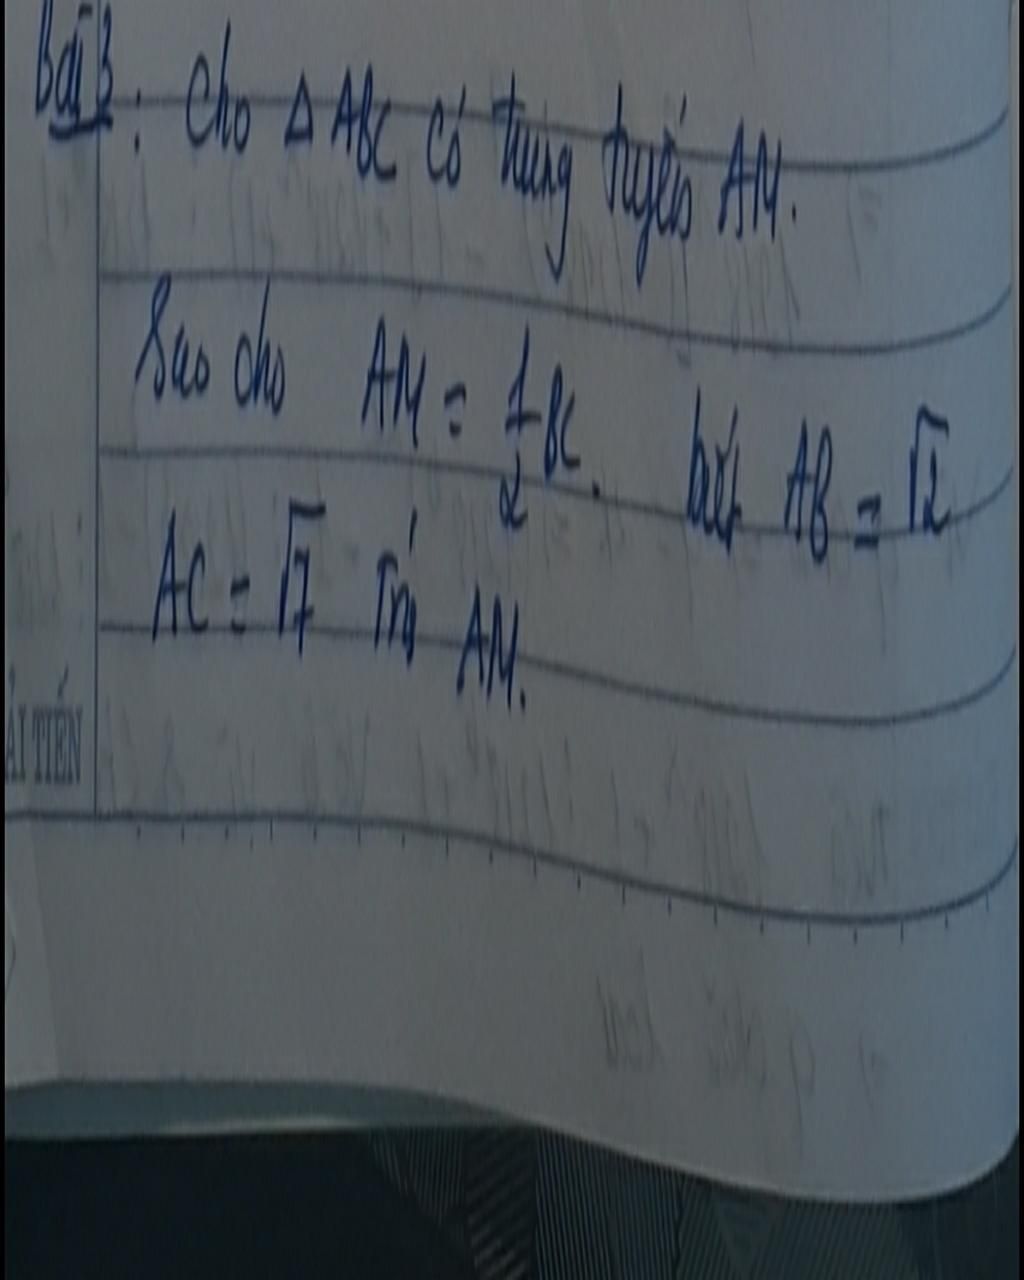 Bài 3: Cho Δ ABC có trung tuyến AM.
Sao cho AM = 1/2 BC. biết AB = √2
AC = √7 Tính AM.
ẢI TIẾN